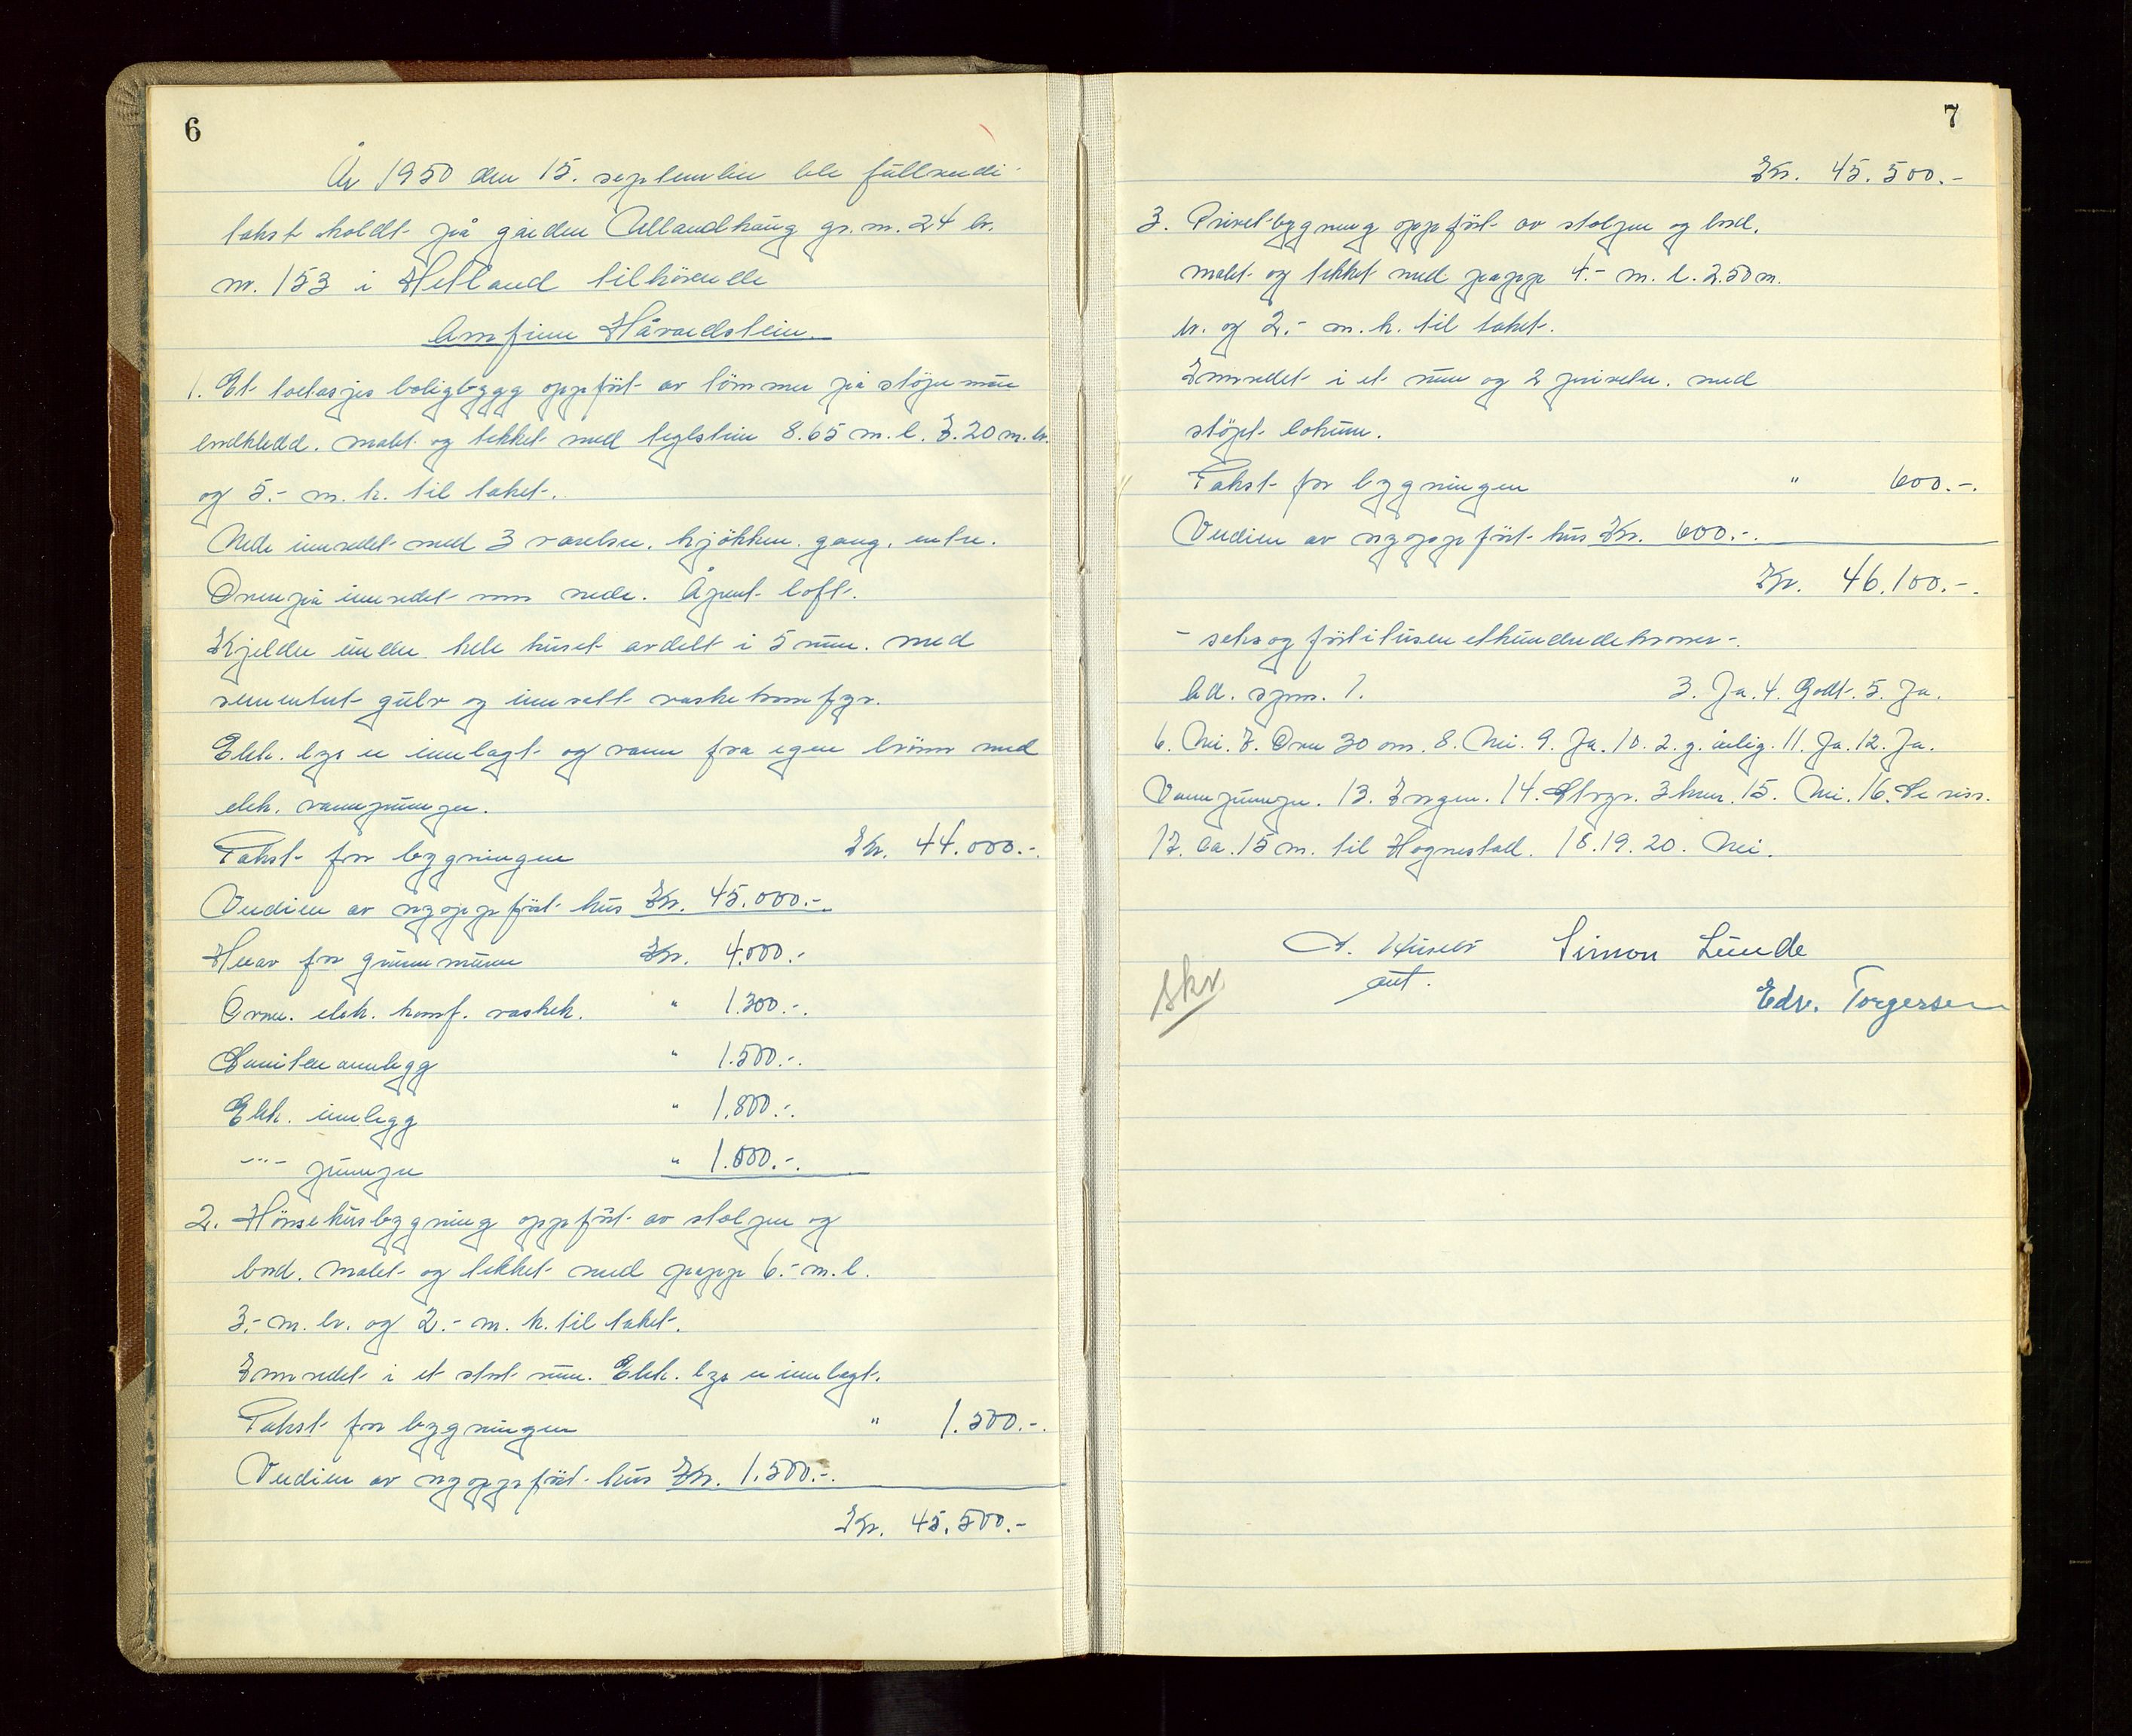 6
År 1950 den 15. september ble fullverdi-
takst holdt på gården Ullandhaug gr. nr. 24 br.
nr. 153 i Hetland tilhörende
Arnfinn Håvardstein.
1. Et toetasjes boligbygg oppfört av tömmer på stöpe mur
bordkledd. malt og tekket med teglstein 8.65 m. l. 7.20 m. br.
og 5.- m. h. til taket.
Nede innredet med 3 værelser. kjökken. gang. entre.
Ovenpå innredet som nede. Åpent loft.
Kjelder under hele huset avdelt i 5 rum. med
sementert gulv og innsatt vaskekomfyr.
Elek. lys er innlagt og vann fra egen brönn med
elek. vannpumpe.
Takst for bygningen Kr. 44.000.-.
Verdien av nyoppfört hus Kr. 45.000.-.
Herav for grunnmuren Kr. 4.000.-
Ovne. elek. komf. vaskek. " 1.300.-.
Sanitæranlegg " 1.500.-.
Elek. innlegg " 1.800.-.
-"- pumpe " 1.000.-.
2. Hönsehusbygning oppfört av stolper og
bord. malt og tekket med papp 6.- m. l.
3.- m. br. og 2.- m. h. til taket.
Innredet i et stort rum. Elek. lys er innlagt.
Takst for bygningen " 1.500.-.
Verdien av nyoppfört hus Kr. 1.500.-.
Kr. 45.500.-
7
Kr. 45.500.-
3. Privetbygning oppfört av stolper og bord.
malt og tekket med papp 4.- m. l. 2.50 m.
br. og 2.- m. h. til taket.
Innredet i et rum og 2 priveter. med
stöpt lokum.
Takst for bygningen " 600.-.
Verdien av nyoppfört hus Kr. 600.-.
Kr. 46.100.-.
- seksogförtitusenetthundredekroner -.
Ad. spm. 1. 3. Ja. 4. Godt. 5. Ja.
6. Nei. 7. Over 30 om. 8. Nei. 9. Ja. 10. 2. g. årlig. 11. Ja. 12. Ja.
Vannpumpe. 13. Ingen. 14. Storgr. 3 kum. 15. Nei. 16. Se riss.
17. ca. 15 m. til Hognestad. 18. 19. 20. Nei.
Simon Lunde
ent.
Edv. Torgersen
skr.